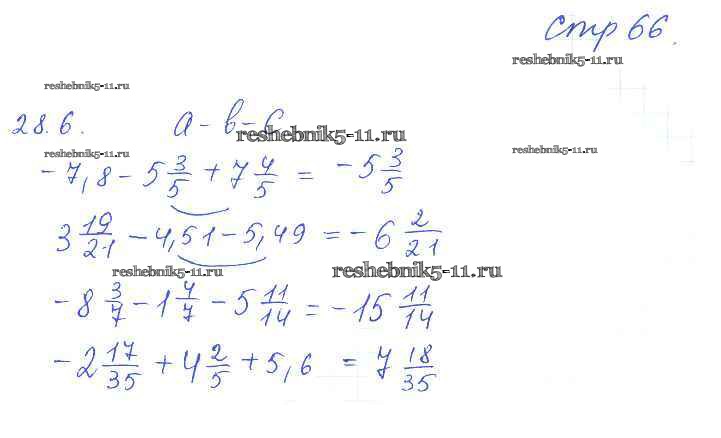 Стр 66.
reshebnik5-11.ru
reshebnik5-11.ru
28.6. a - b - c
reshebnik5-11.ru
reshebnik5-11.ru
reshebnik5-11.ru
-7,8 - 5 3/5 + 7 4/5 = -5 3/5
3 19/21 - 4,51 - 5,49 = -6 2/21
reshebnik5-11.ru
reshebnik5-11.ru
-8 3/7 - 1 4/7 - 5 11/14 = -15 11/14
-2 17/35 + 4 2/5 + 5,6 = 7 18/35